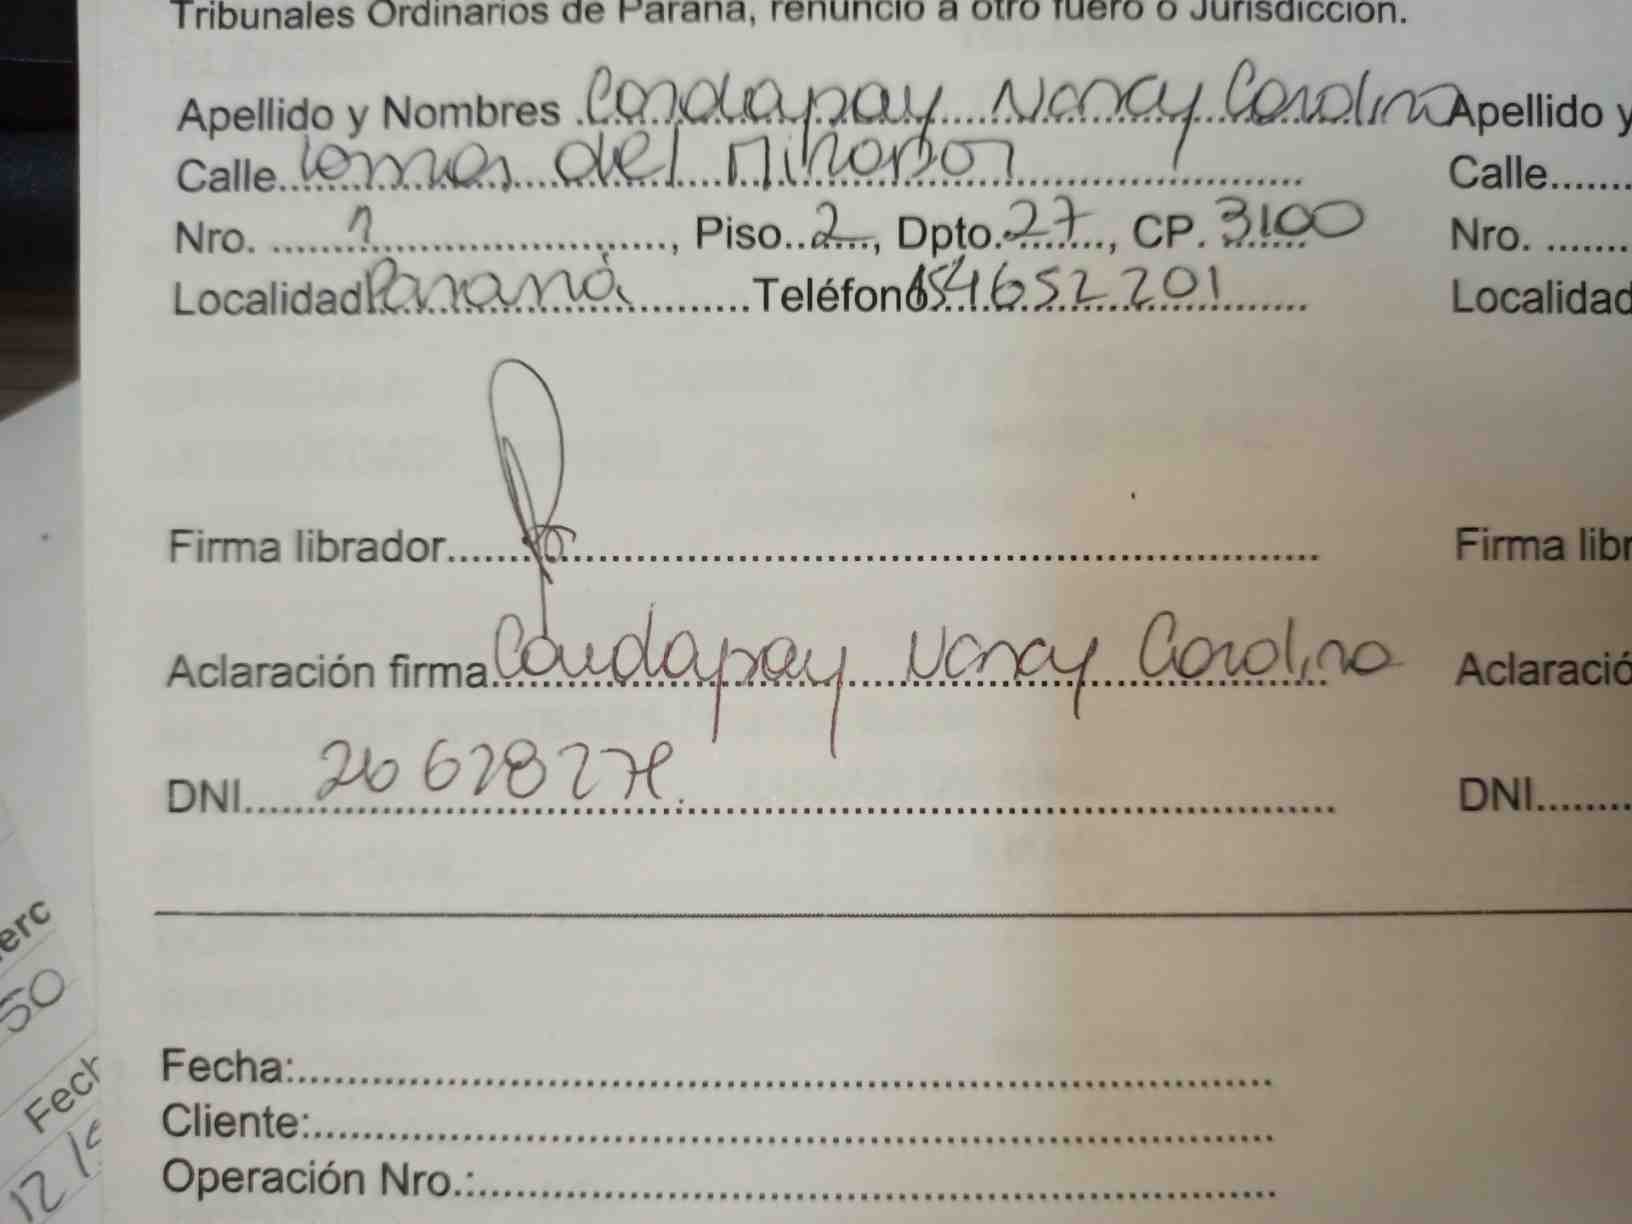 Tribunales Ordinarios de Paraná, renuncio a otro fuero o Jurisdicción.
Apellido y Nombres Condapay Nancy Carolina Apellido y
Calle Lomas del Mirador Calle
Nro. 1, Piso 2, Dpto. 27, CP. 3100 Nro.
Localidad Paraná Teléfono 154652201 Localidad
Firma librador Firma libr
Aclaración firma Condapay Nancy Carolina Aclaració
DNI DNI
erc
50
Fech
12/
Fecha:
Cliente:
Operación Nro.: